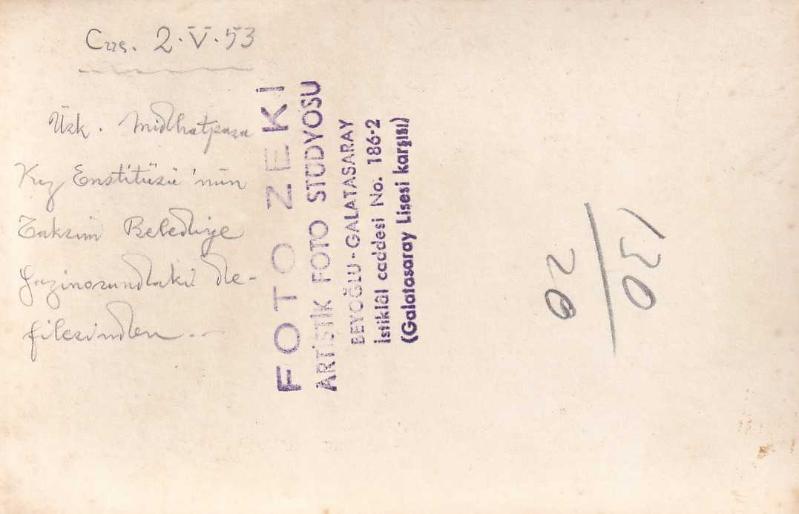 Cus. 2.V.53
Üsk. Midhatpaşa
Kız Enstitüsü'nün
Taksim Belediye
gazinosundaki de-
filesinden..
FOTO ZEKİ
ARTİSTİK FOTO STÜDYOSU
BEYOĞLU - GALATASARAY
İstiklâl caddesi No. 186-2
(Galatasaray Lisesi karşısı)
130
20